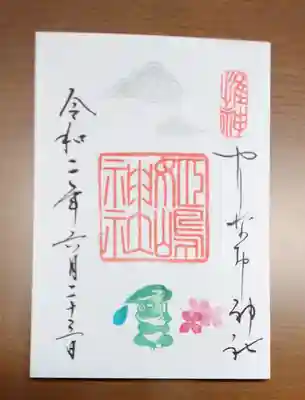 やりなおし神社
姫嶋
神社
令和二年六月二十三日